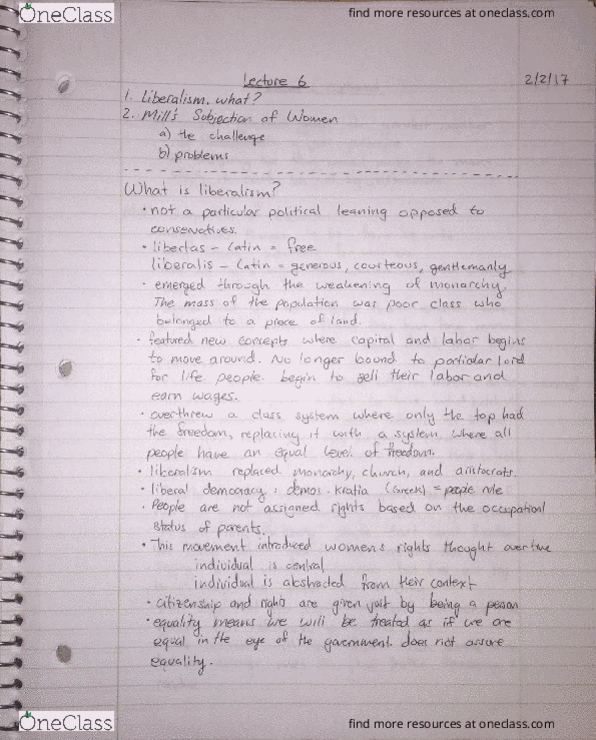 OneClass
find more resources at oneclass.com
Lecture 6
2/2/17
1. Liberalism. what?
2. Mill's Subjection of Women
a) the challenge
b) problems
What is liberalism?
• not a particular political leaning opposed to
conservatives.
• libertas - Latin = free
liberalis - Latin = generous, courteous, gentlemanly
• emerged through the weakening of monarchy.
The mass of the population was poor class who
belonged to a piece of land.
• featured new concepts where capital and labor begins
to move around. No longer bound to particular lord
for life people. begin to sell their labor and
earn wages.
• overthrew a class system where only the top had
the freedom, replacing it with a system where all
people have an equal level of freedom.
• liberalism replaced monarchy, church, and aristocrats.
• liberal democracy: demos. Kratia (Greek) = people rule
• People are not assigned rights based on the occupational
status of parents.
• This movement introduced womens rights thought overtime
individual is central
individual is abstracted from their context
• citizenship and rights are given just by being a person
• equality means we will be treated as if we are
equal in the eye of the government. does not assure
equality.
OneClass
find more resources at oneclass.com